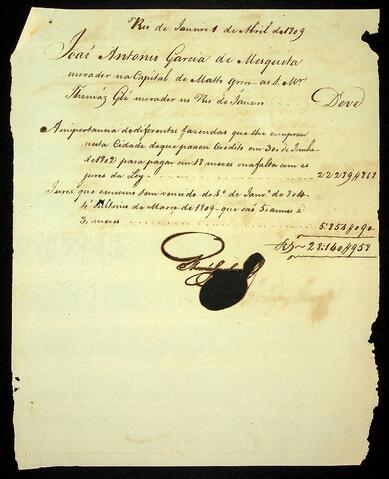 Rio de Janeiro 1 de Abril de 1809
João Antonio Garcia de Mesquita
morador na Capital de Matto Grosso ao S. Mr
Thomáz Gé morador no Rio de Janeiro Deve
A importancia de diferentes fazendas que lhe comprou
nesta Cidade de que passou Credito em 30 de Junho
de 1802 para pagar em 18 mezes na falta com os
juros da Ley 22289,868
Juros que o mesmo tem vencido do 1º de Janrº de 804
té de Março de 1809 que são 5 annos e
3 mezes 5:851,090
Rs 28:140,958